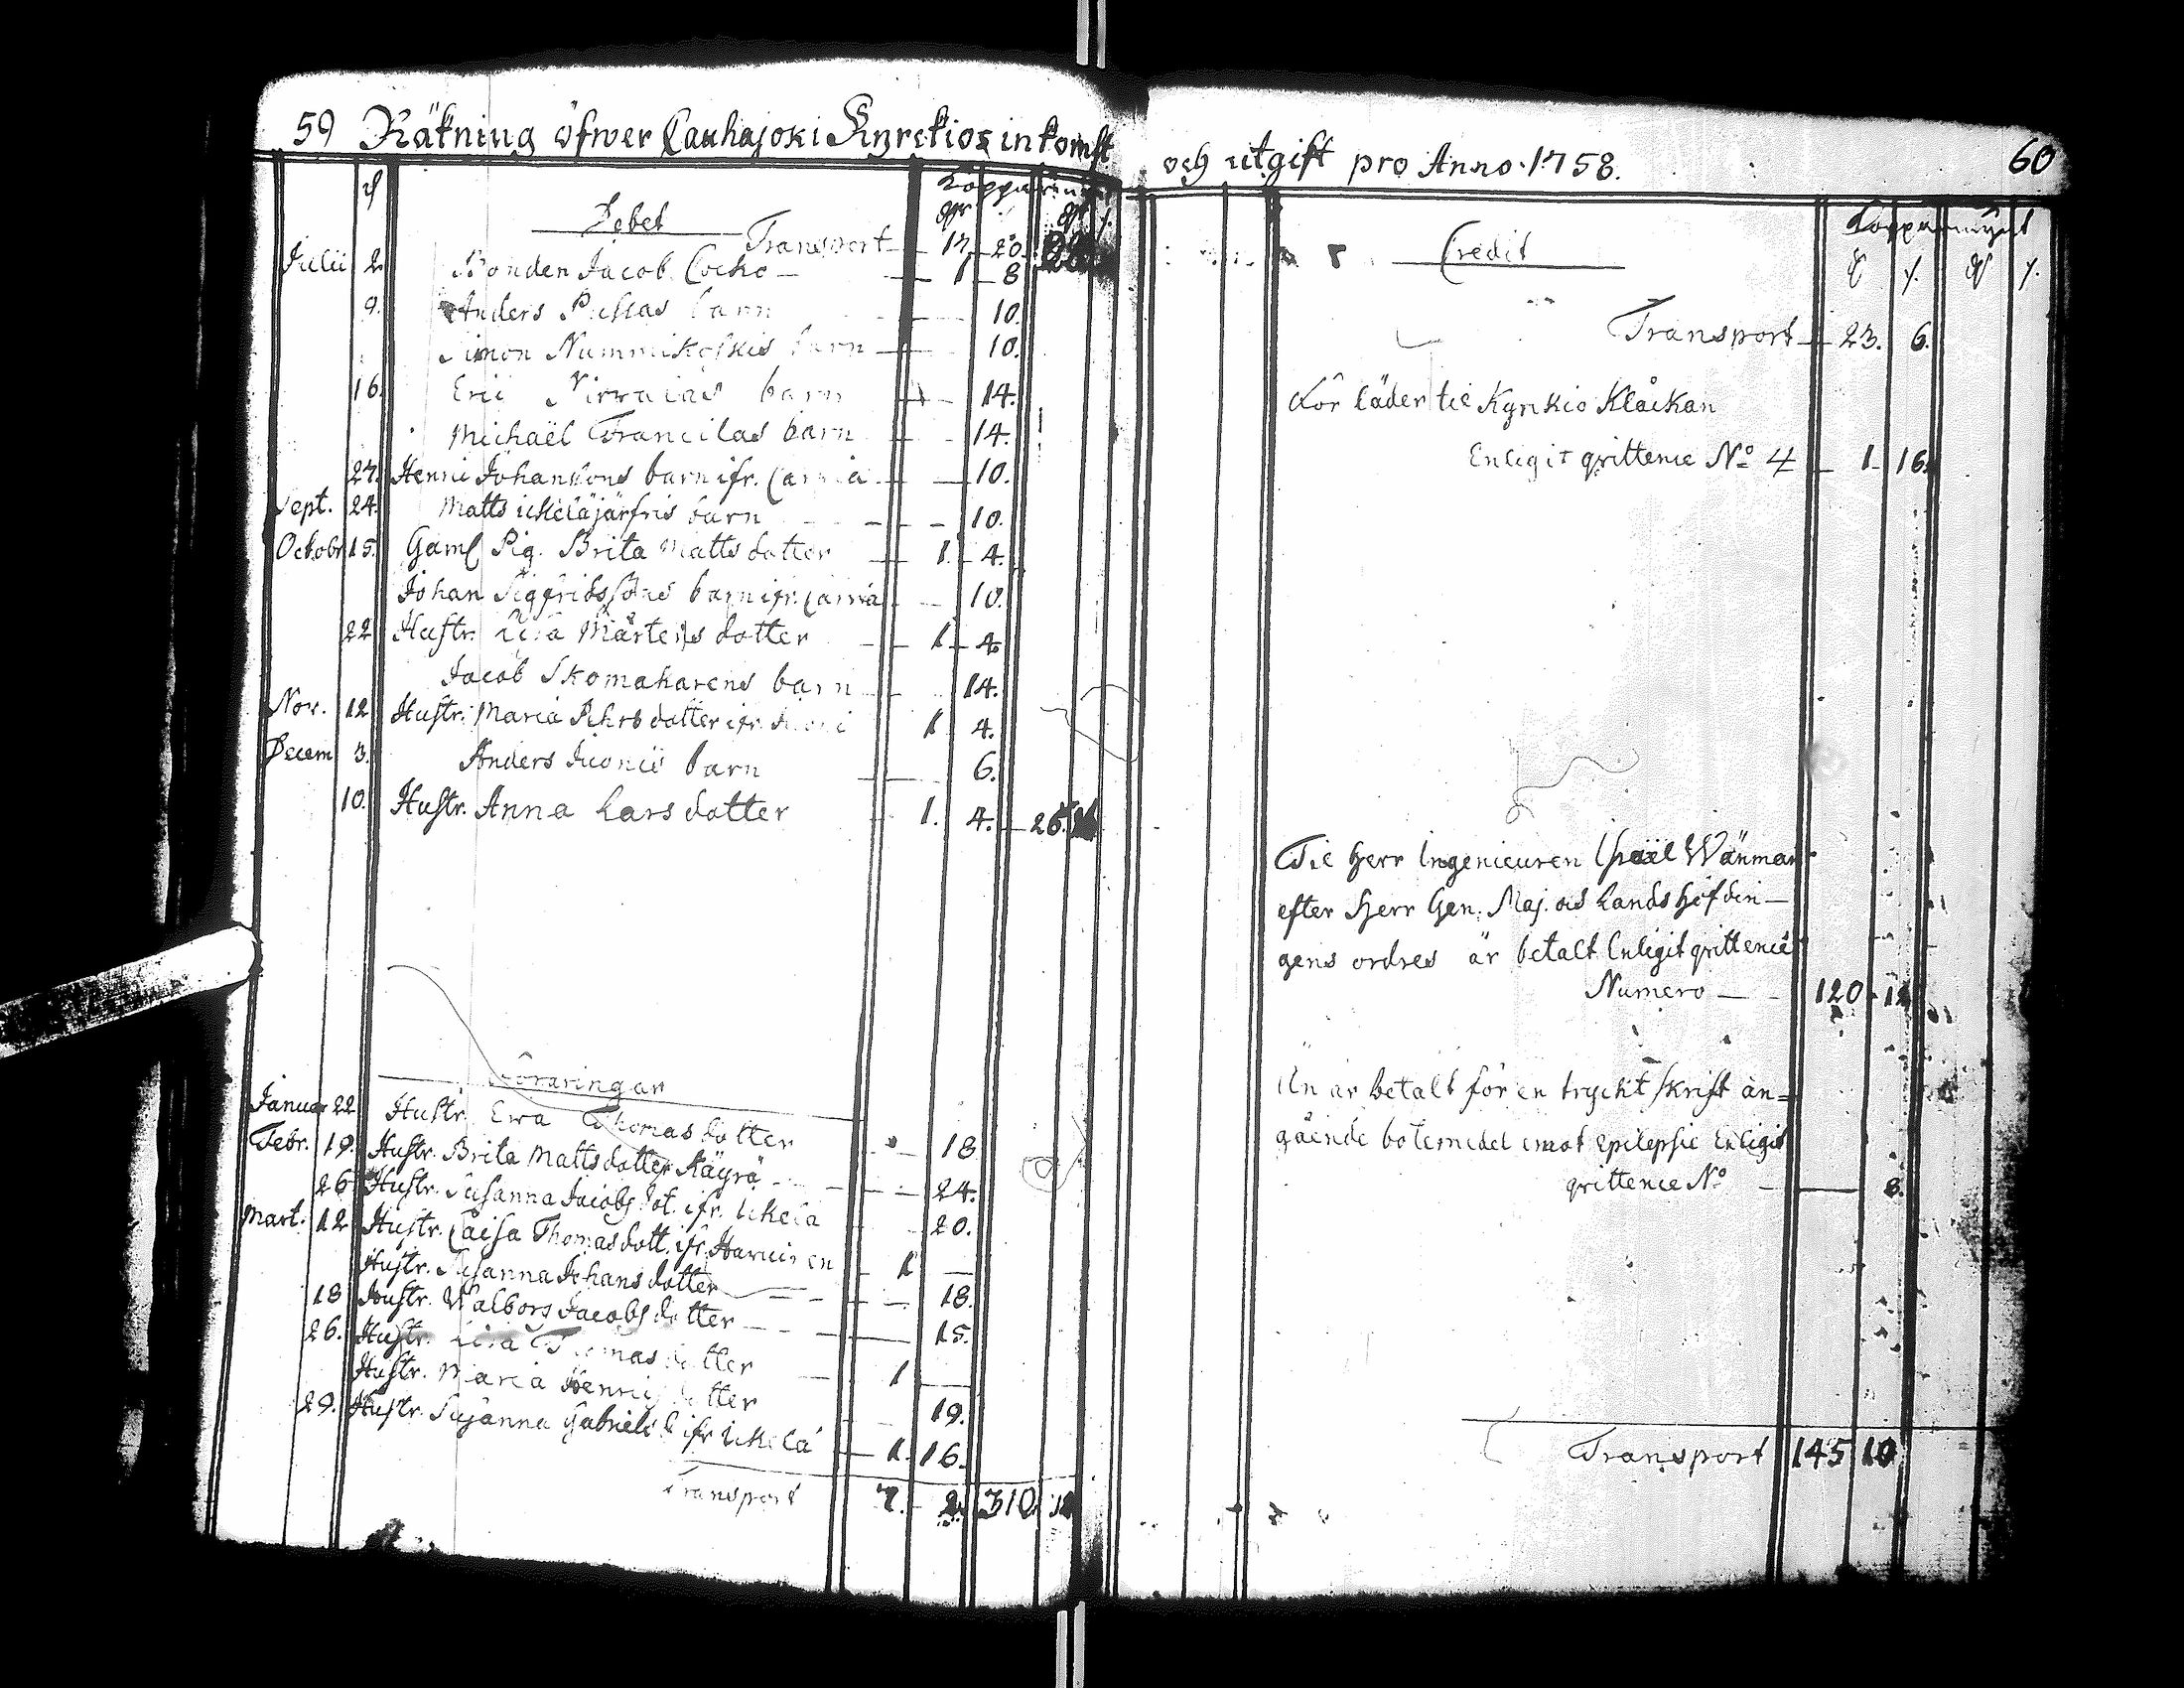 59 Räkning öfwer Lauhajoki Kyrckios inkomst
Kopparmynt
Debet
Transport 17. 20.
Julii 2. Bonden Jacob Locko 1 8
9. Anders Pussas barn 10.
Simon Nummikoskis barn 10.
16. Eric barn 14.
Michaël Francilas barn 14.
27. Henric Johanssons barn ifr. 10.
Sept. 24. Matts ickeläjärfvis barn 10.
Octobr 15. Gaml Pig. Brita Matts dotter 1. 4.
Johan Sigfridssons barn ifr. 10.
22 Hustr. Lisa Mårtens dotter 1 4.
Jacob Skomakarens barn 14.
Nov. 12 Hustr. Maria Pehrs dotter ifr. 1 4.
Decem 3. Anders barn 6.
10. Hustr. Anna Lars dotter 1. 4. 26.
Föraringar
Januar 22 Hustr. Ewa Thomas dotter 18
Febr. 19. Hustr. Brita Matts dotter Käyrä 24.
26 Hustr. Susanna Jacobs dot. ifr. Ickelä 20.
Mart. 12 Hustr. Caisa Thomas dott. ifr. 1
Hustr. Susanna Johans dotter 18.
18 Hustr. Walborg Jacobs dotter 15.
26. Hustr. Lisa Thomas dotter 1
Hustr. Maria Henrics dotter 19.
29. Hustr. Susanna Gabriels d. ifr Ickelä 1. 16.
Transport 7. 2. 310. 12
och utgift pro Anno 1758. 60
Kopparmynt
Credit
Transport 23. 6.
För läder til Kyrkio Klåckan
Enligit qvittence No 4 1 16.
Til Herr Ingenieuren Israël Wänman
efter Herr Gen. Maj. ock Landshöfdin-
gens ordres är betalt Enligit qvittence
Numero 120 12
Än är betalt för en tryckt skrift an=
gående botemedel emot Epilepsie Enligit
qvittence No 8.
Transport 145 10